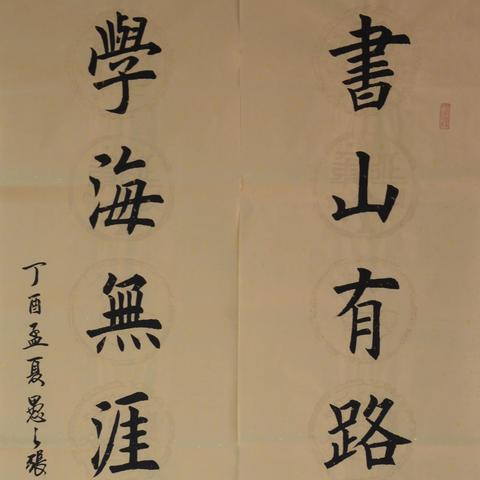 書山有路
學海無涯
丁酉孟夏愚之張